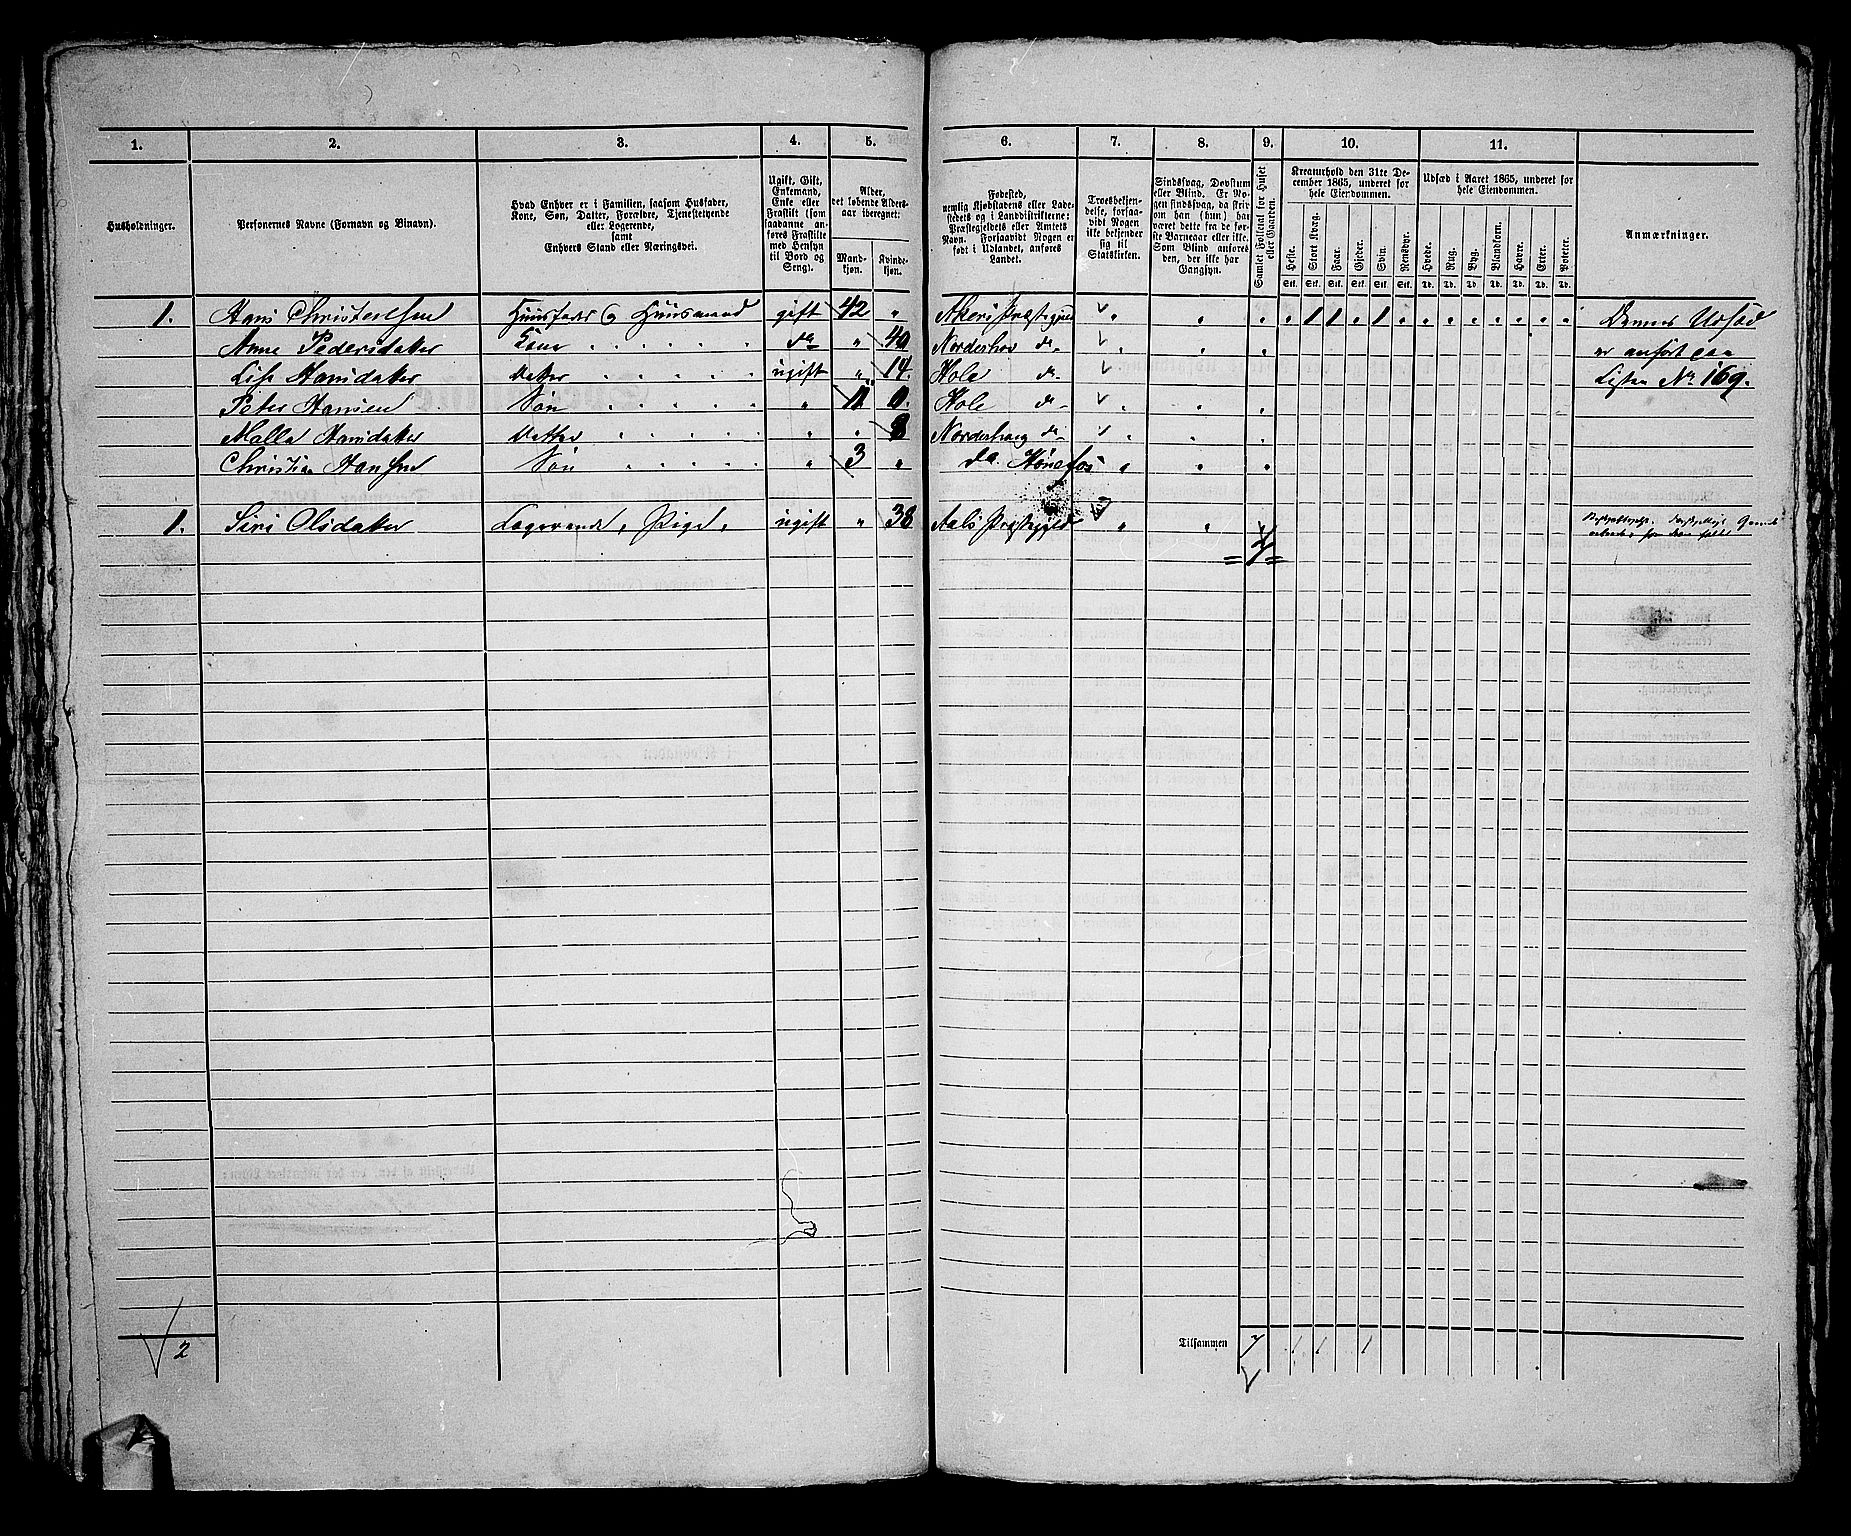 1. 2. 3. 4. 5. 6. 7. 8. 9. 10. 11.
Husholdninger.
Personernes Navne (Fornavn og Binavn).
Hvad Enhver er i Familien, saasom Husfader,
Kone, Søn, Datter, Forældre, Tjenestetyende
eller Logerende,
samt
Enhvers Stand eller Næringsvei.
Ugift, Gift,
Enkemand,
Enke eller
Fraskilt (som
saadanne an-
føres Fraskilte
med Hensyn
til Bord og
Seng).
Alder,
det løbende Alders-
aar iberegnet:
Mand-
kjøn.
Kvinde-
kjøn.
Fødested,
nemlig Kjøbstadens eller Lade-
stedets og i Landdistrikterne:
Præstegjeldets eller Amtets
Navn. Forsaavidt Nogen er
født i Udlandet, anføres
Landet.
Troesbekjen-
delse, forsaa-
vidt Nogen
ikke bekjender
sig til
Statskirken.
Sindssvag, Døvstum
eller Blind. Er No-
gen sindssvag, da skriv
om han (hun) har
været dette fra de før-
ste Barneaar eller ikke.
Som Blind anføres
den, der ikke har
Gangsyn.
Samlet Folketal for Huset
eller Gaarden.
Kreaturhold den 31te De-
cember 1865, underet for
hele Eiendommen.
Heste. Stort Kvæg. Faar. Gjeder. Svin. Rensdyr.
Stk. Stk. Stk. Stk. Stk. Stk.
Udsæd i Aaret 1865, underet for
hele Eiendommen.
Hvede. Rug. Byg. Blandkorn. Havre. Erter. Poteter.
Td. Td. Td. Td. Td. Td. Td.
Anmærkninger.
1. Hans Christensen Huusfader og Huusmand gift 42 " Akers Præstegjeld 1 1 1 Dennes Udsæd
Anne Pedersdatter Kone do " 40 Norderhov do er anført paa
Lise Hansdatter Datter ugift " 14. Hole do Listen No 169.
Peter Hansen Søn " 11 Hole do
Malla Hansdatter Datter " " 8 Norderhaug do
Christian Hansen Søn " 3 " do. Hønefos
1. Siri Olsdatter Logerende, Pige, ugift " 38 Aals Præstegjeld
= 7 =
2
Tilsammen 7 1 1 1